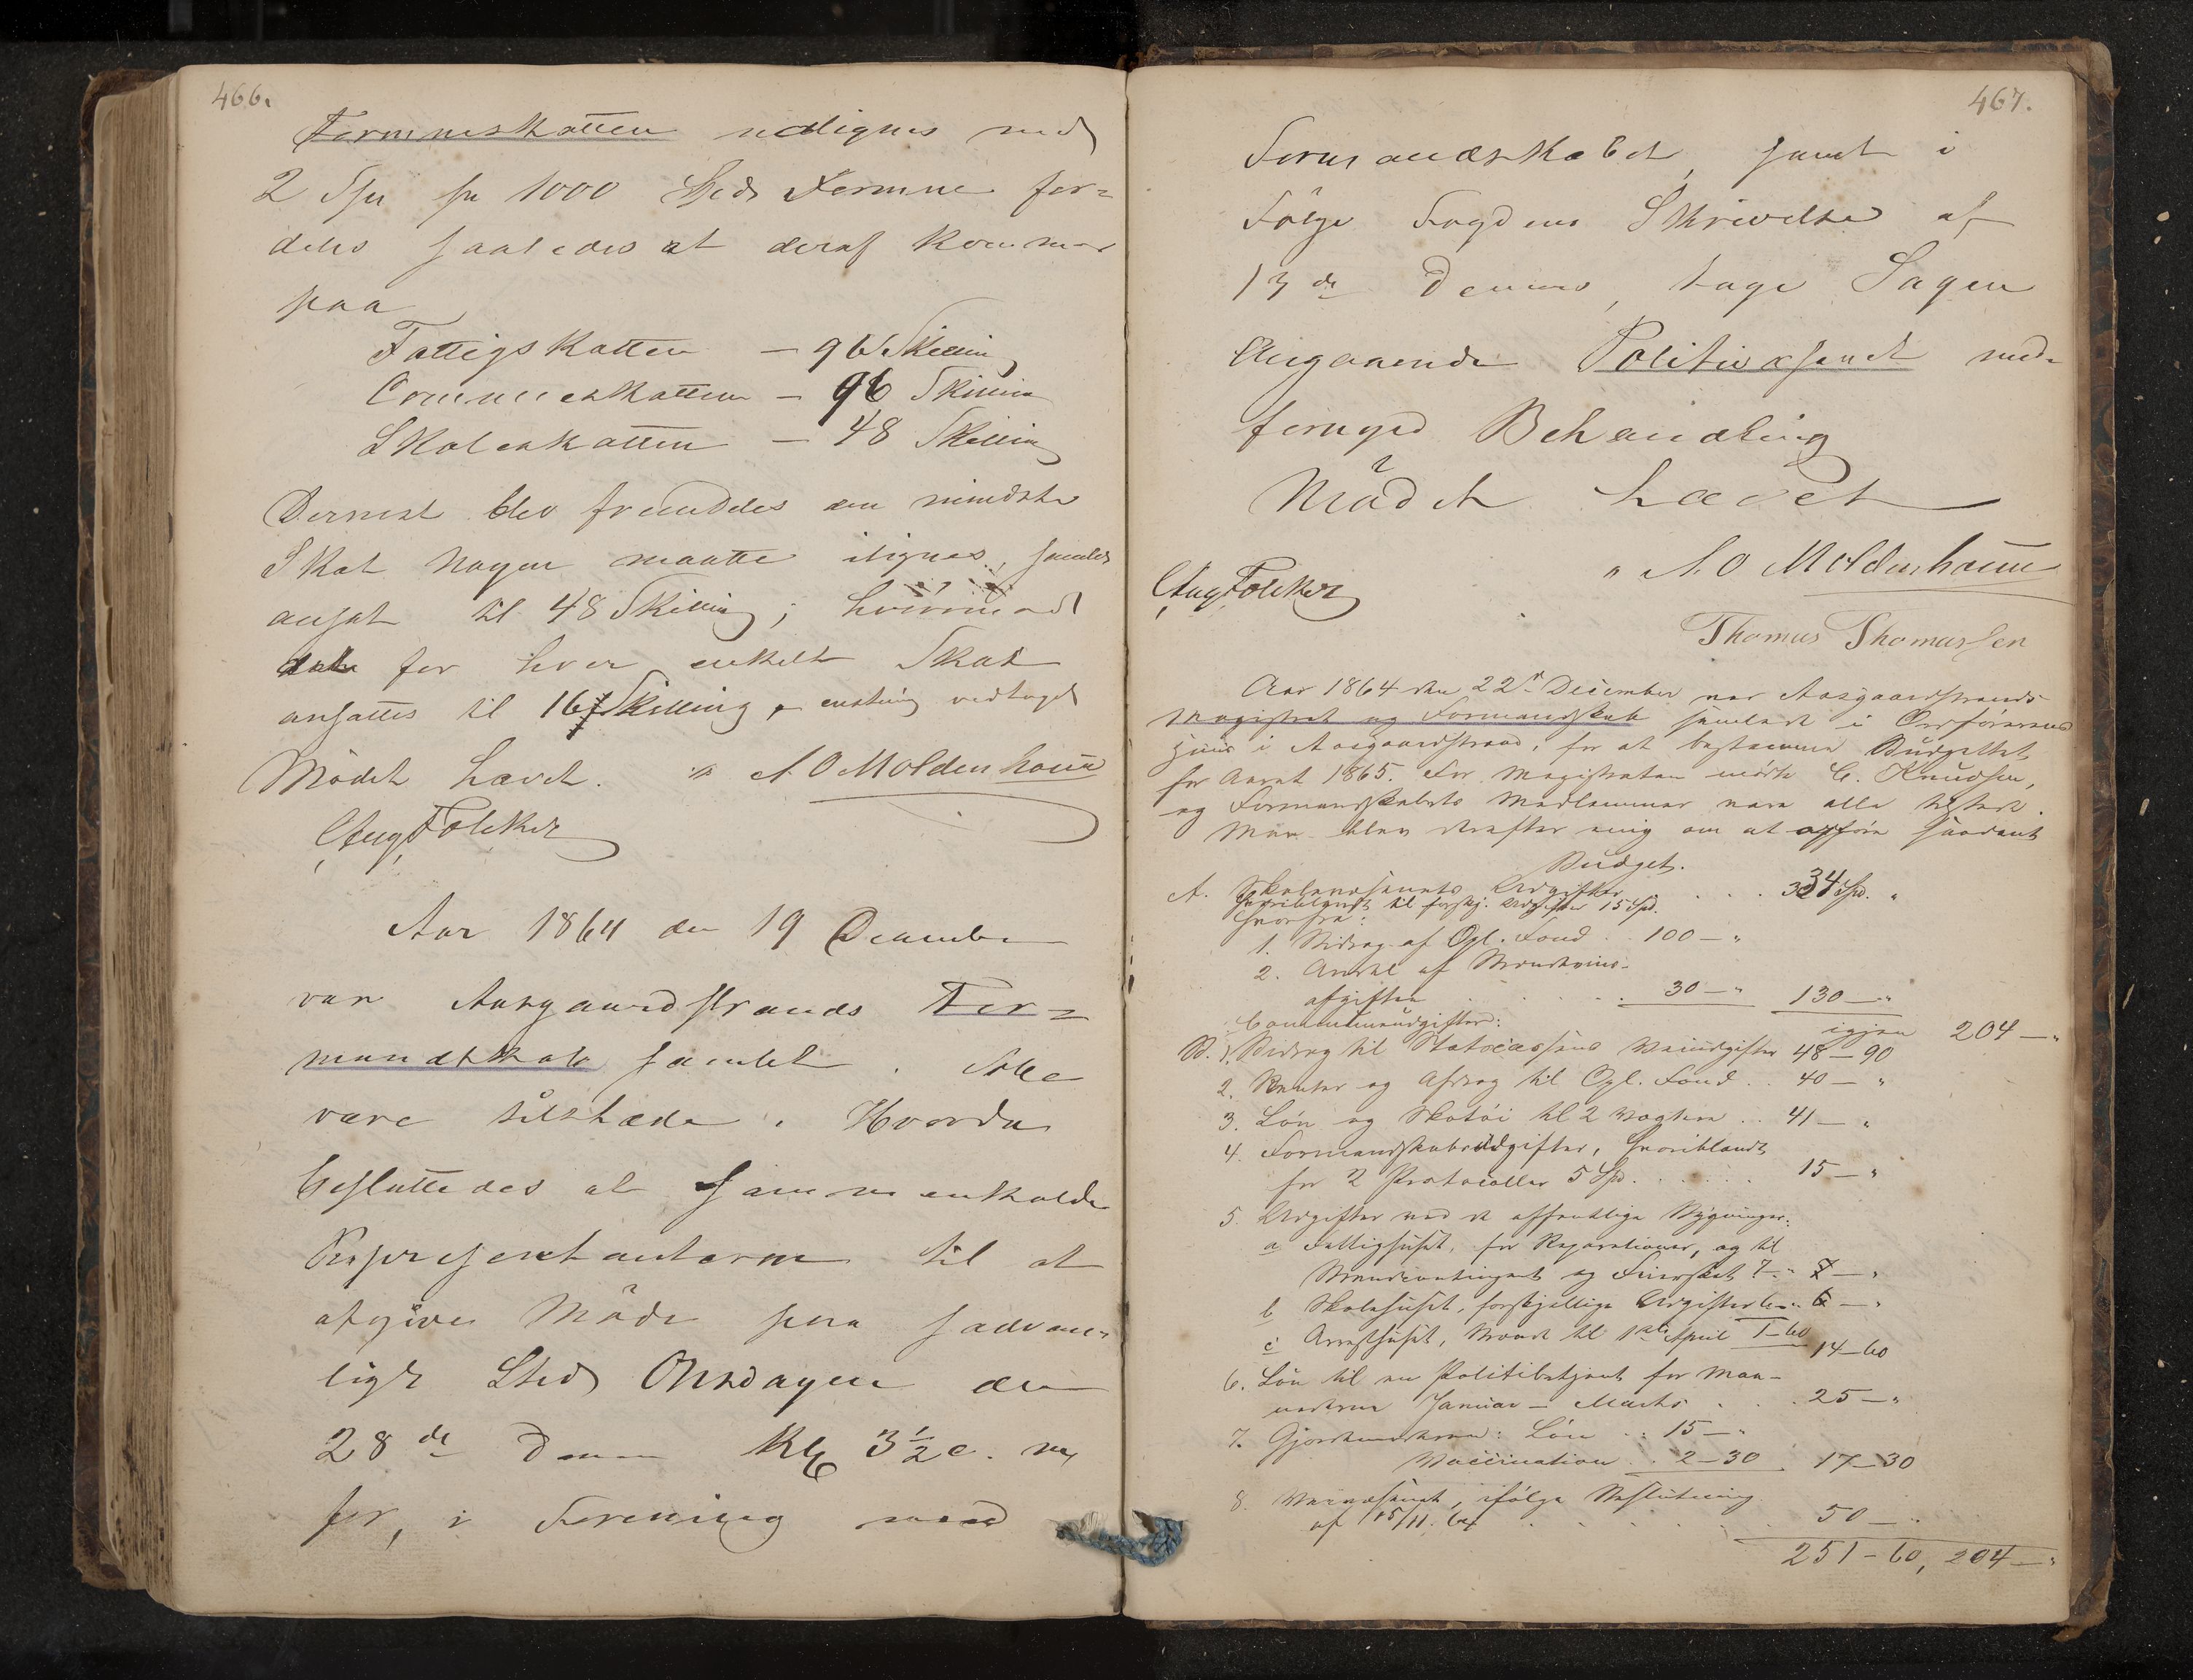 466.
Formueskatten udlignes med
2 Spd pr 1000 Spds Formue for=
deles saaledes at deraf kommer
paa
Fattigskatten — 96 Skilling
Communeskatten — 96 Skilling
Skoleskatten — 48 Skilling
Dernest blev fremdeles den mindste
Skat Nogen maatte ilignes, samlet
ansat til 48 Skilling; hvorimod
for hver enkelt Skat
ansattes til 16 Skilling, enstemig vedtaget
Mödet hævet. A O Moldenhauer
Aug Folcker
Aar 1864 den 19 December
var Aasgaardstrands For=
mandskab samlet. Alle
vare tilstæde. Hvorda
besluttedes at sammenkalde
Repræsentanterne til at
afgive Möde paa sædvan=
ligt Sted Onsdagen den
28de Dennes Kl 3½ e. m
for, i Forening med
467.
Formandskabet, samt i
Fölge Fogdens Skrivelse af
13de Dennes, tage Sagen
Angaaende Politivæsenet under
fornyed Behandling
Mödet hævet
A. O Moldenhauer
Aug Folcker
Thomas Thomassen
Aar 1864 den 22de December var Aasgaardstrands
Magistrat og Formandskab samlede i Ordförerens
Huus i Aasgaardstrand, for at bestemme Budgettet
for Aaret 1865. For Magistraten mödte C. Knudsen,
og Formandskabets Medlemmer vare alle tilstede.
Man blev derefter enig om at opföre saadant
Budget.
A. Skolevæsenets Udgifter . . . 334 Spd. "
hvoriblandt til forskj. Udgifter 15 Spd.
hvorfra:
1. Bidrag af Opl. Fond . . 100 — "
2. Andel af Brændeviins-
afgiften . . . . 30 — " 130 — "
igjen 204 — "
B. Communeudgifter:
1. Bidrag til Statscassens Veiudgifter 48 — 90
2. Renter og Afdrag til Opl. Fond . . 40 — "
3. Lön og Skotöi til 2 Vægtere . . 41 — "
4. Formandskabsudgifter, hvoriblandt
for 2 Protocoller 5 Spd. . . . . 15 — "
5. Udgifter ved de offentlige Bygninger:
a Fattighuset, for Reparationer, og til
Brandcontingent og 7 — "
b Skolehuset, forskjellige Udgifter 6 — "
c Arresthuset, Brænde til 1ste April 1 — 60 14 — 60
6. Lön til en Politibetjent for Maa-
nederne Januar — Marts . . . 25 — "
7. Gjordemoderen: Lön . . 15 — "
Vaccination . . 2 — 30 17 — 30
8. Veivæsenet, ifölge Beslutning
af 15/11. 64 . . . . . 50 — "
251 — 60, 204 — "